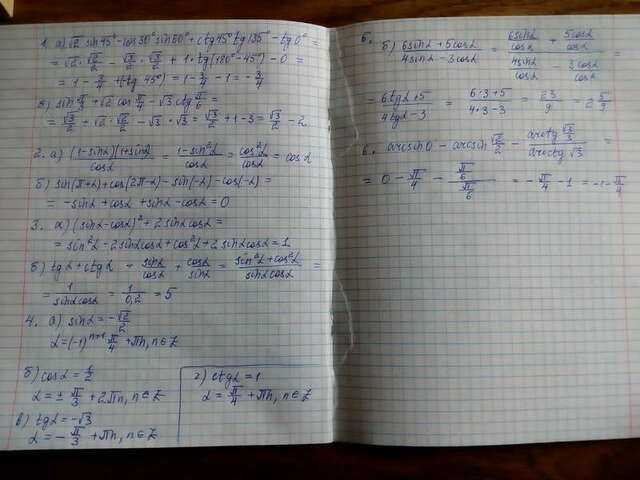 1. а) √2 sin45° - cos30° sin60° + ctg45° tg135° - tg0° =
= √2 · √2/2 - √3/2 · √3/2 + 1 · tg(180° - 45°) - 0 =
= 1 - 3/4 + (tg 45°) = 1 - 3/4 - 1 = -3/4
= √3/2 + √2 · √2/2 - √3 · √3 = √3/2 + 1 - 3 = √3/2 - 2
2. а) (1 - sinα)(1 + sinα)/cosα = 1 - sin²α/cosα = cos²α/cosα = cosα
б) sin(π+α) + cos(2π-α) - sin(-α) - cos(-α) =
= -sinα + cosα + sinα - cosα = 0
3. а) (sinα - cosα)² + 2sinαcosα =
= sin²α - 2sinαcosα + cos²α + 2sinαcosα = 1
б) tgα + ctgα = sinα/cosα + cosα/sinα = sin²α + cos²α/sinαcosα =
= 1/sinαcosα = 1/0,2 = 5
4. а) sinα = -√2/2
α = (-1)ⁿ⁺¹ π/4 + πn, n ∈ Z
б) cosα = 1/2
α = ± π/3 + 2πn, n ∈ Z
в) tgα = -√3
α = - π/3 + πn, n ∈ Z
г) ctgα = 1
α = π/4 + πn, n ∈ Z
5. б) 6sinα + 5cosα/4sinα - 3cosα = 6sinα/cosα + 5cosα/cosα / 4sinα/cosα - 3cosα/cosα =
= 6tgα + 5/4tgα - 3 = 6·3+5/4·3-3 = 23/9 = 2 5/9
6. arcsin0 - arcsin √2/2 - arctg √3/3 / arcctg √3 =
= 0 - π/4 - π/6 / π/6 = - π/4 - 1 = -1 - π/4